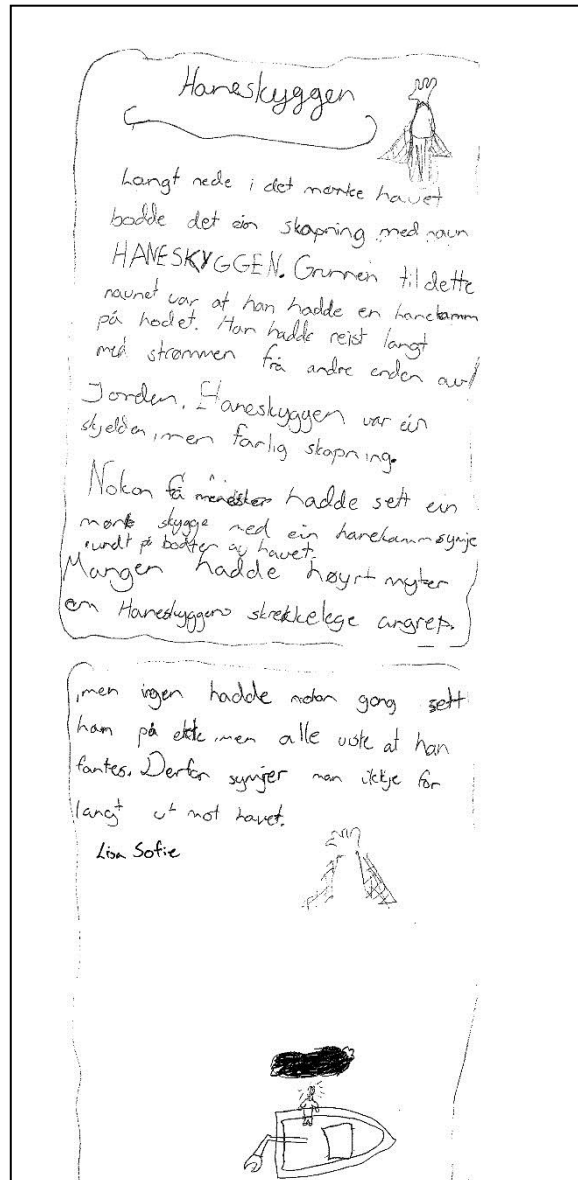 Haneskyggen
Langt nede i det mørke havet
bodde det ein skapning med navn
HANESKYGGEN. Grunnen til dette
navnet var at han hadde en hanekamm
på hodet. Han hadde reist langt
med strømmen frå andre enden av
Jorden. Haneskyggen var ein
skjelden, men farlig skapning.
Nokon få hadde sett ein
mørk skygge med ein hanekamm symje
rundt på av havet.
Mangen hadde høyrt myter
om Haneskyggens skrekkelege angrep.
,men ingen hadde nokon gong sett
ham på ekte, men alle viste at han
fantes. Derfor symjer man ikkje for
langt ut mot havet.
Lisa Sofie